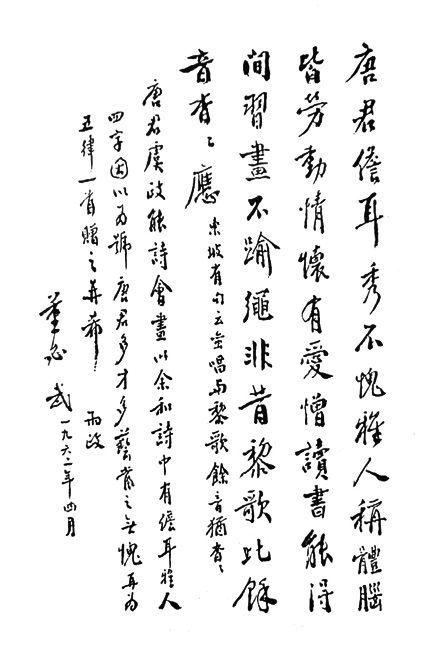 唐君儋耳秀不愧雅人稱體腦
皆勞動情懷有愛憎讀書能得
間習畫不踰繩非昔黎歌比餘
音杳〻應 東坡有句云蛮唱与黎歌餘音猶杳〻
唐君虞政能詩會畫以余和詩中有儋耳雅人
四字因以为號唐君多才多藝當之无愧再为
五律一首贈之并希
政
董必武 一九六二年四月